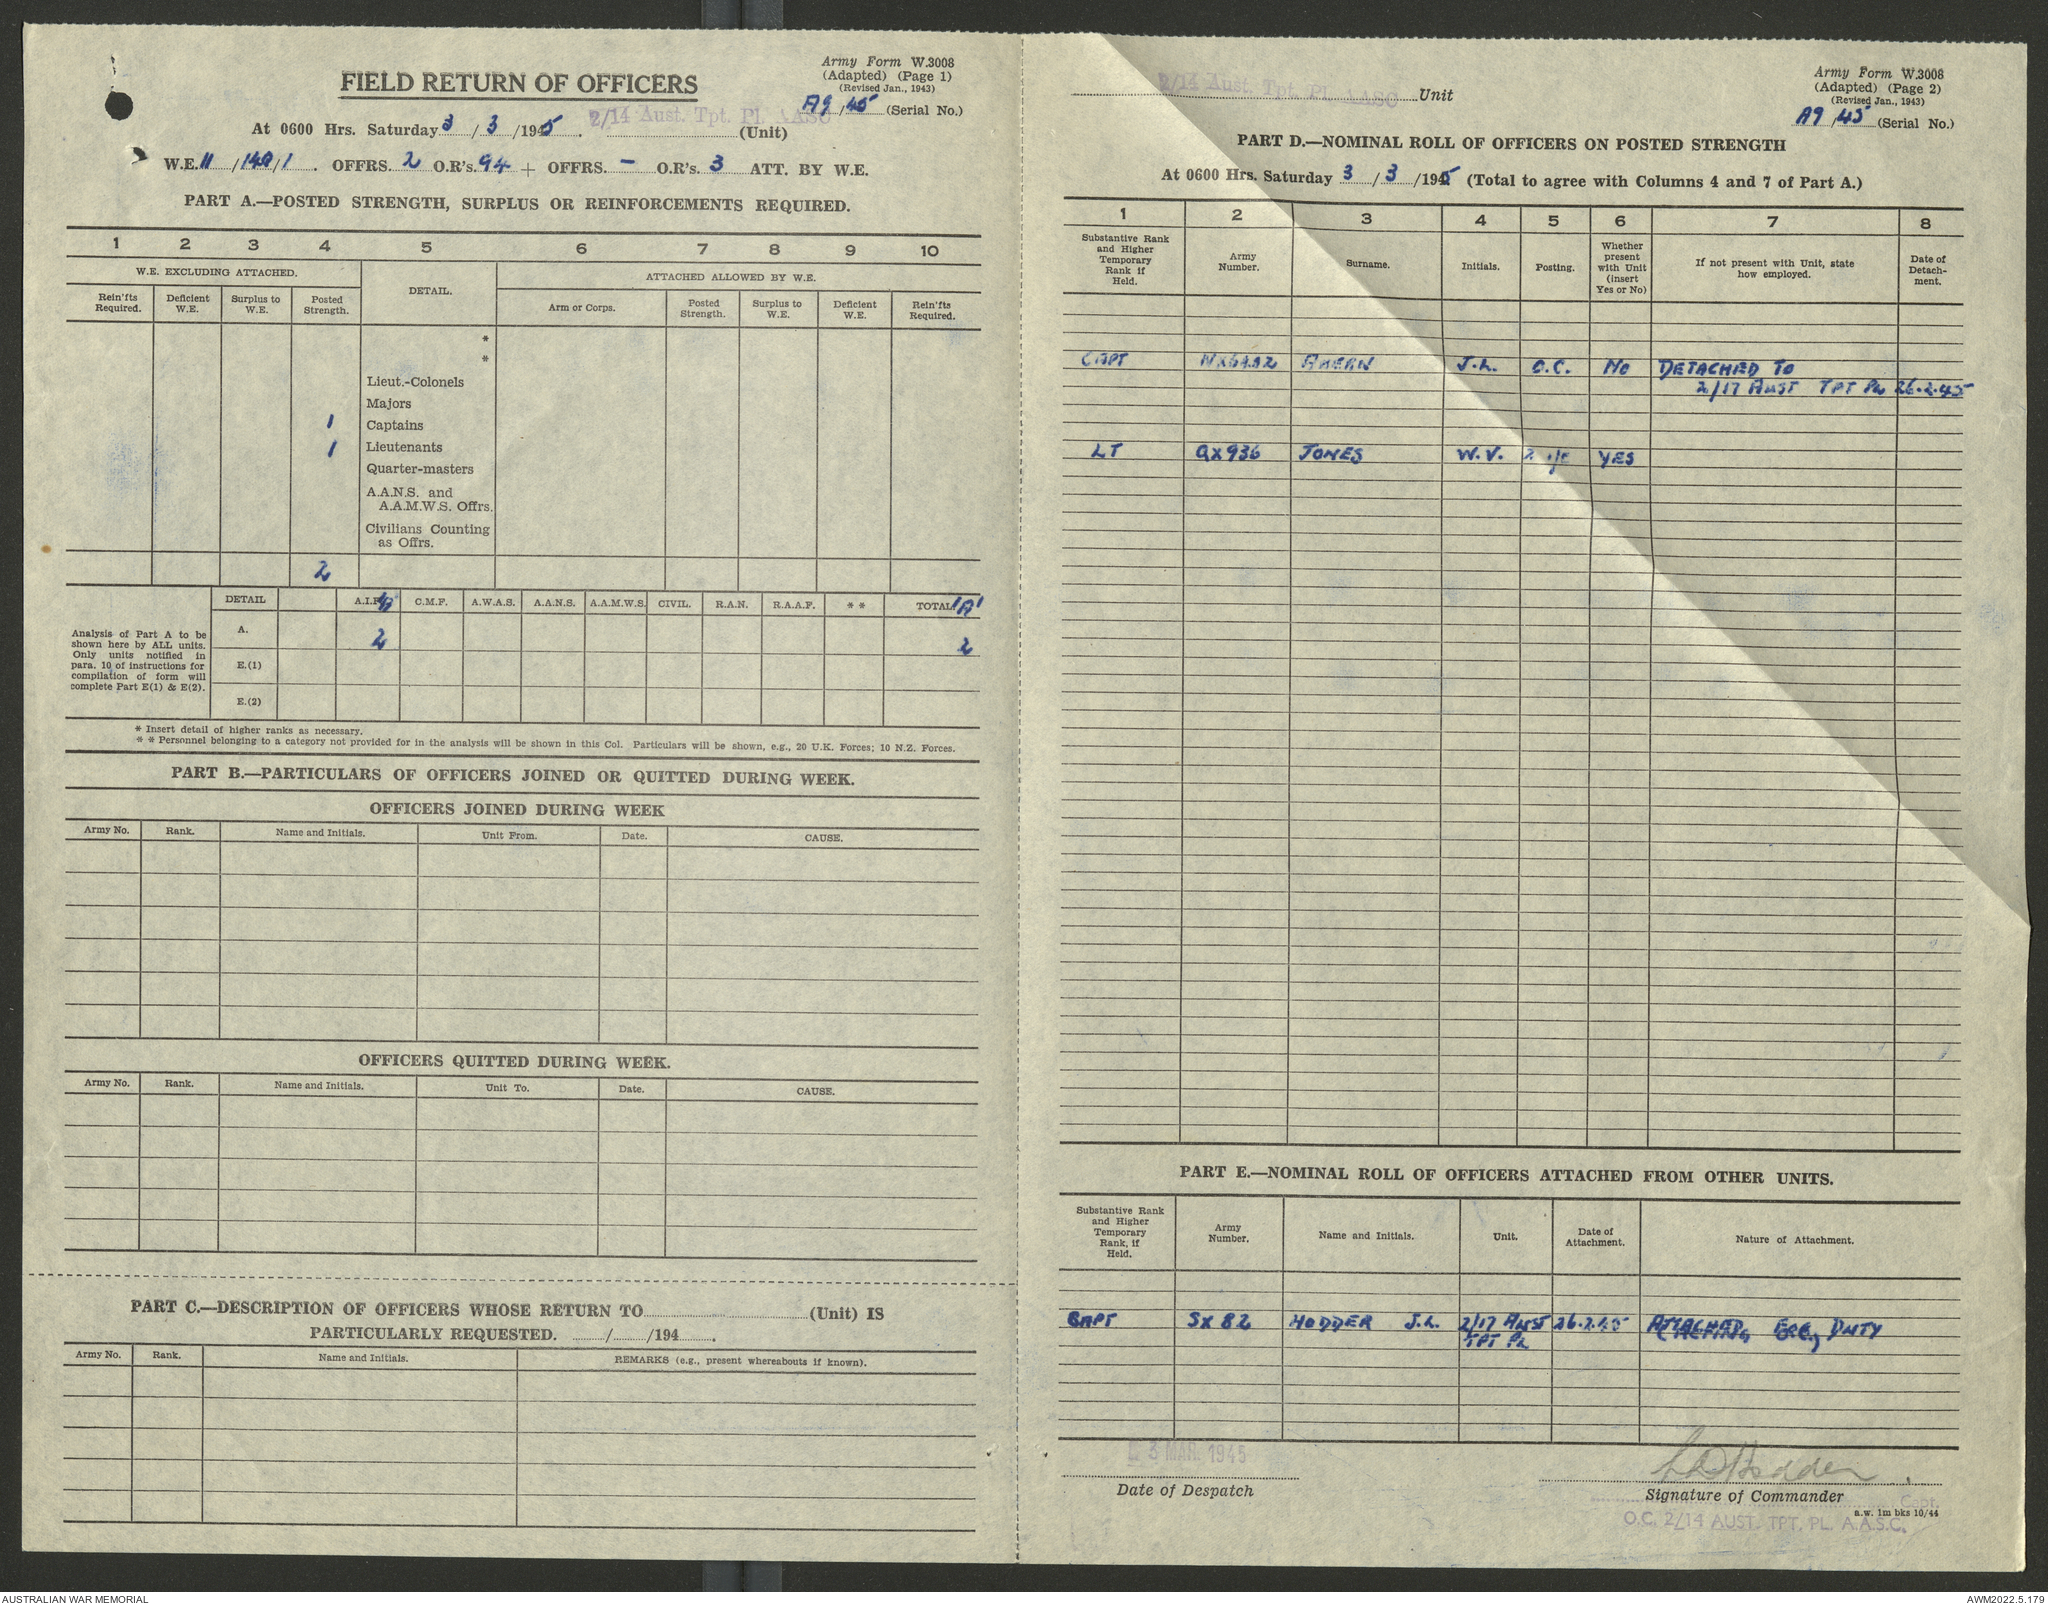 FIELD RETURN OF OFFICERS
Army Form W.3008
(Adapted) (Page 1)
(Revised Jan., 1943)
A9/45 (Serial No.)
At 0600 Hrs. Saturday 3/3/1945. 2/14 Aust. Tpt. Pl. AASC (Unit)
W.E. 11/148/1. OFFRS. 2 O.R's. 94 + OFFRS. – O.R's. 3 ATT. BY W.E.
PART A.—POSTED STRENGTH, SURPLUS OR REINFORCEMENTS REQUIRED.
1 2 3 4 5 6 7 8 9 10
W.E. EXCLUDING ATTACHED. DETAIL. ATTACHED ALLOWED BY W.E.
Rein'fts Required. Deficient W.E. Surplus to W.E. Posted Strength. Arm or Corps. Posted Strength. Surplus to W.E. Deficient W.E. Rein'fts Required.
*
*
Lieut.-Colonels
Majors
1 Captains
1 Lieutenants
Quarter-masters
A.A.N.S. and
A.A.M.W.S. Offrs.
Civilians Counting
as Offrs.
2
DETAIL A.I.F. C.M.F. A.W.A.S. A.A.N.S. A.A.M.W.S. CIVIL. R.A.N. R.A.A.F. ** TOTAL 'A'
Analysis of Part A to be
shown here by ALL units.
Only units notified in
para. 10 of instructions for
compilation of form will
complete Part E(1) & E(2).
A. 2 2
E.(1)
E.(2)
* Insert detail of higher ranks as necessary.
* * Personnel belonging to a category not provided for in the analysis will be shown in this Col. Particulars will be shown, e.g., 20 U.K. Forces; 10 N.Z. Forces.
PART B.—PARTICULARS OF OFFICERS JOINED OR QUITTED DURING WEEK.
OFFICERS JOINED DURING WEEK
Army No. Rank. Name and Initials. Unit From. Date. CAUSE.
OFFICERS QUITTED DURING WEEK.
Army No. Rank. Name and Initials. Unit To. Date. CAUSE.
PART C.—DESCRIPTION OF OFFICERS WHOSE RETURN TO (Unit) IS
PARTICULARLY REQUESTED. / /194 .
Army No. Rank. Name and Initials. REMARKS (e.g., present whereabouts if known).
2/14 Aust. Tpt. Pl. AASC Unit
Army Form W.3008
(Adapted) (Page 2)
(Revised Jan., 1943)
A9/45 (Serial No.)
PART D.—NOMINAL ROLL OF OFFICERS ON POSTED STRENGTH
At 0600 Hrs. Saturday 3/3/1945 (Total to agree with Columns 4 and 7 of Part A.)
1 2 3 4 5 6 7 8
Substantive Rank and Higher Temporary Rank if Held. Army Number. Surname. Initials. Posting. Whether present with Unit (insert Yes or No) If not present with Unit, state how employed. Date of Detach-ment.
CAPT AHERN J.L. O.C. NO DETACHED TO
2/17 AUST TPT PL 26.2.45
LT QX936 JONES W.V. 2 i/c YES
PART E.—NOMINAL ROLL OF OFFICERS ATTACHED FROM OTHER UNITS.
Substantive Rank and Higher Temporary Rank, if Held. Army Number. Name and Initials. Unit. Date of Attachment. Nature of Attachment.
CAPT SX82 HODDER J.L. 2/17 AUST 26.2.45 ATTACHED, FOR DUTY
TPT PL
3 MAR 1945
Date of Despatch
Hodder
Signature of Commander
Capt.
a.w. 1m bks 10/44
O.C. 2/14 AUST. TPT. PL. A.A.S.C.
AUSTRALIAN WAR MEMORIAL
AWM2022.5.179